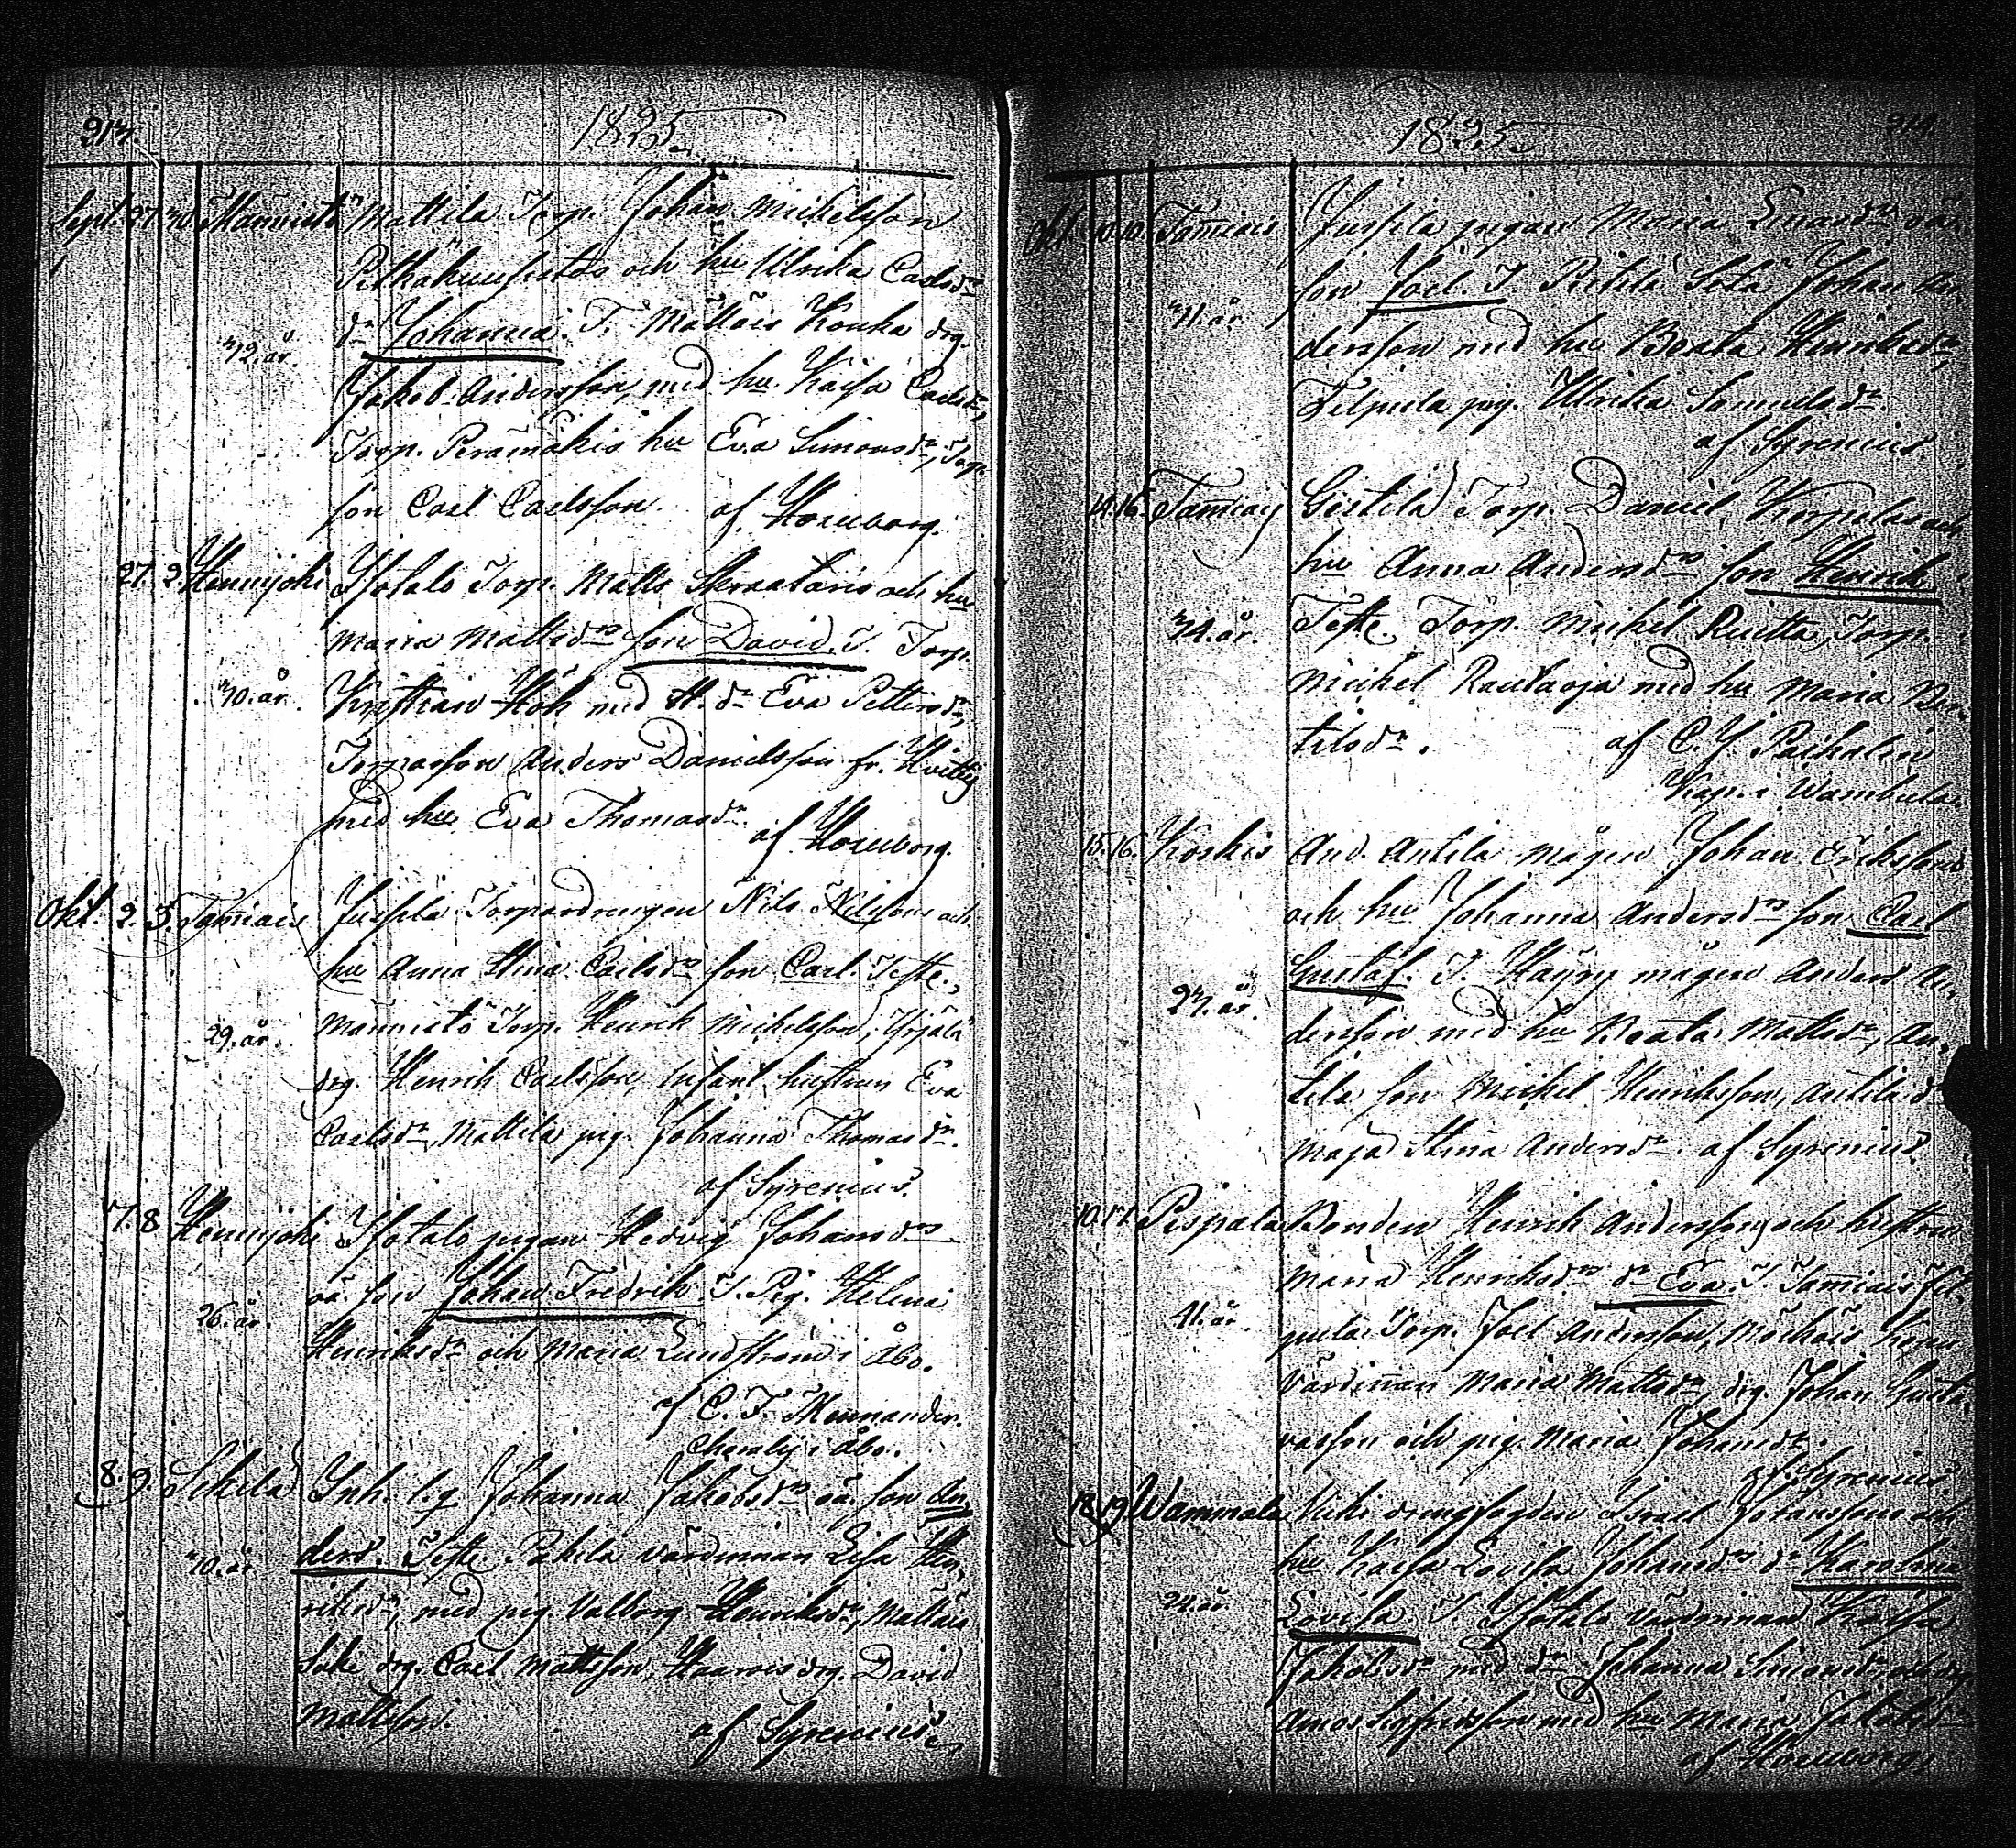 213.
1825.
Sept. 27. 30. Männistö Mattila Torp. Johan Michelsson
och hu Ulrika Carlsdr
dr Johanna. T. Mattais Kouka drg.
42. år.
Jakob Andersson, med hu Kaisa Carlsdr,
Torp. Peramäkis hu Eva Simonsdr, Torp.
son Carl Carlsson. af Horeborg.
27. 2. Hennijoki Isotalo Torp. Matts Skraataris och hu
Maria Mattsdr son David. T. Torp.
40. år. Kristian Höh med H. dr Eva Pettersdr,
Torparson Anders Danielsson fr. Hvittis
med hu Eva Thomasdr.
af Horeborg.
Okt. 2. 3. Tamiais Jussila Torpardrengen Nils Nilssons och
hu Anna Stina Carlsdr son Carl. Teste.,
29. år. Männistö Torp. Henrik Michelsson, Yrjälä
drg. Henrik Carlsson, hustrun Eva
Carlsdr, Mattila pig. Johanna Thomasdr.
af Syrenius.
7. 8 Hennijoki Isotalo pigan Hedvig Johansdrs
26. år. oä. son Johan Fredrik. T. Pig. Helena
Henriksdr och Maria Lundström i Åbo.
af C. F. Mennander.
i Åbo.
8. 9. Sikilä Inh. l.q. Johanna Jakobsdrs oä. son An-
40. år ders. Teste Pakila värdinnan Lisa Hen-
riksdr, med pig. Valborg Henriksdr, Mattais
Säke drg. Carl Mattsson, Haarois drg. David
Mattsson. af Syrenius.
214
1825.
Okt. 10. 10. Tamiais Jussila pigan Maria oä.
41. år. son Joel. T. Pietilä Johan An-
dersson med hu Beata Henriksdr,
Filpula pig. Ulrika Samuelsdr.
af Syrenius
14. 16. Tamiais Gistila Torp. Daniel Korpelas och
hu Anna Andersdrs son Henrik
44. år. Teste. Torp. Michel Ruitta, Torp.
Michel Rautaoja med hu Maria Ber-
tilsdr. af C. J. Paikalin
Kap. i Wambula.
15. 16. Koskis And. Antila mågen Johan Erikssons
och hu Johanna Andersdrs son Carl
27. år. Gustaf. T. Häyry mågen Anders An-
dersson med hu Beata Mattsdr, An-
tila son Michel Henriksson, Antila d
Maja Stina Andersdr. af Syrenius.
10. 17. Pispala Bonden Henrik Andersson och hustrun
41. år Maria Henriksdrs dr Eva. T. Tamiais Fil-
pula Torp. Joel Andersson,
Värdinnan Maria Mattsdr, drg. Johan Gusta-
vasson och pig. Maria Johansdr.
af Syrenius.
18. 19 Wammala drengfogden Israel Johanssons och
hu Kaisa Lovisa Johansdrs dr Karolina
24. år. Lovisa. T. Isotalo värdinnan Kaisa
Jakobsdr med dr Johanna Simonsdr
Amos Sigfridsson med hu Maria Jakobsdr
af Horeborg.